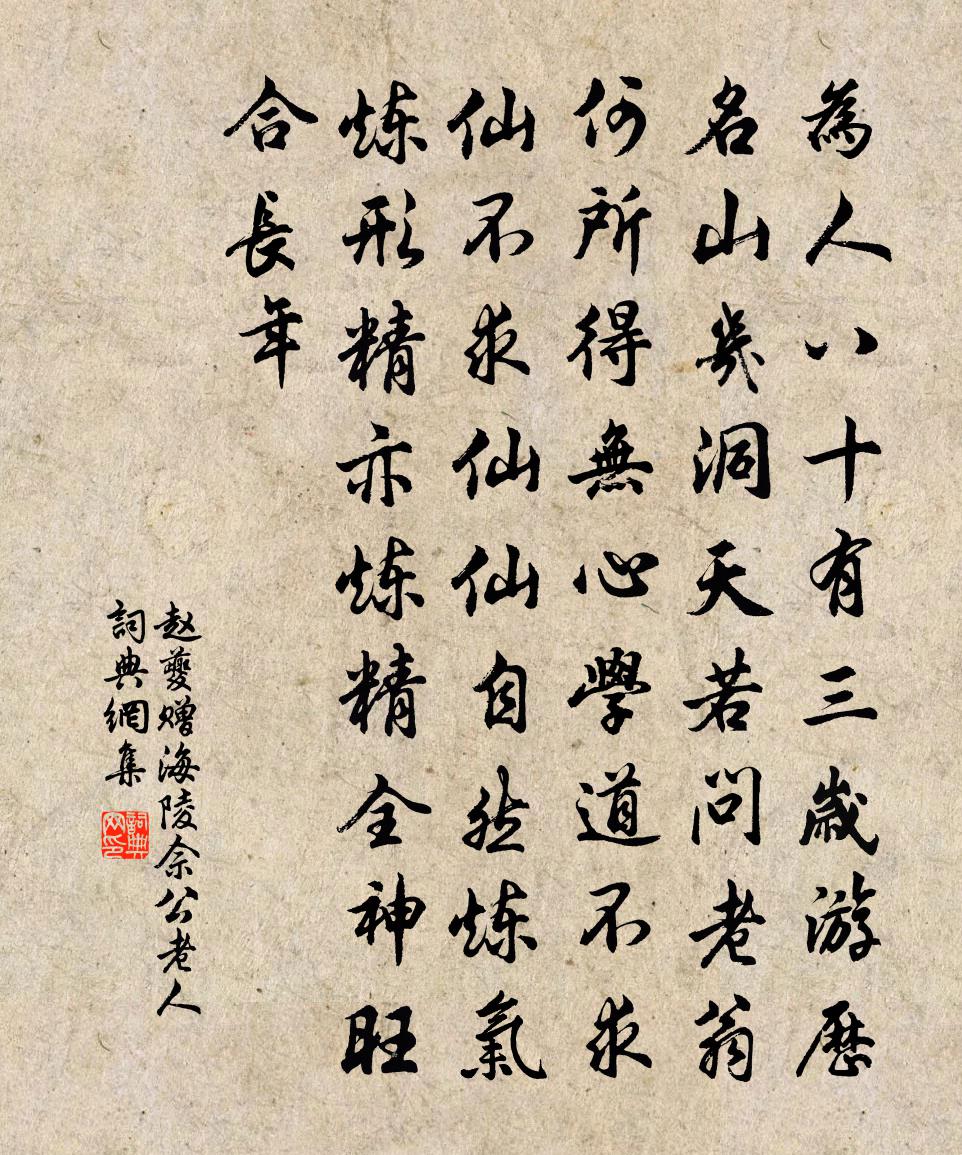 為人八十有三歲游歷
名山幾洞天若問老翁
何所得無心學道不求
仙不求仙仙自然炼氣
炼形精亦炼精全神旺
合長年
赵夔赠海陵佘公老人
詞典網集
詞典网印